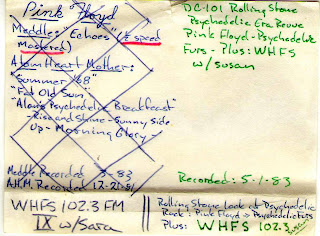 Pink Floyd
Meddle: "Echoes" (½ speed
Mastered)
Atom Heart Mother:
"Summer '68"
"Fat Old Sun"
"Alan's Psychedelic Breakfast"
- Rise and Shine - Sunny Side
Up - Morning Glory -
Meddle Recorded 3-83
A.H.M. Recorded 12-21-81
WHFS 102.3 FM
IX w/Sara
DC-101 Rolling Stone
Psychedelic Era Revue
Pink Floyd - Psychedelic
Furs - Plus: WHFS
w/Susan
Recorded: 5-1-83
Rolling Stone Look at Psychedelic
Rock: Pink Floyd → Psychedelic Furs
Plus: WHFS 102.3